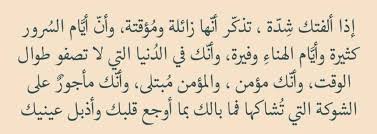 إذا ألفتك شِدّة ، تذكّر أنّها زائلة ومُؤقتة، وأنّ أيّام السُرور
كثيرة وأيّام الهناءِ وفيرة، وأنّك في الدُنيا التي لا تصفو طوال
الوقت، وأنّك مؤمن ، والمؤمن مُبتلى، وأنّك مأجورٌ على
الشوكة التي تُشاكها فما بالك بما أوجع قلبك وأذبل عينيك